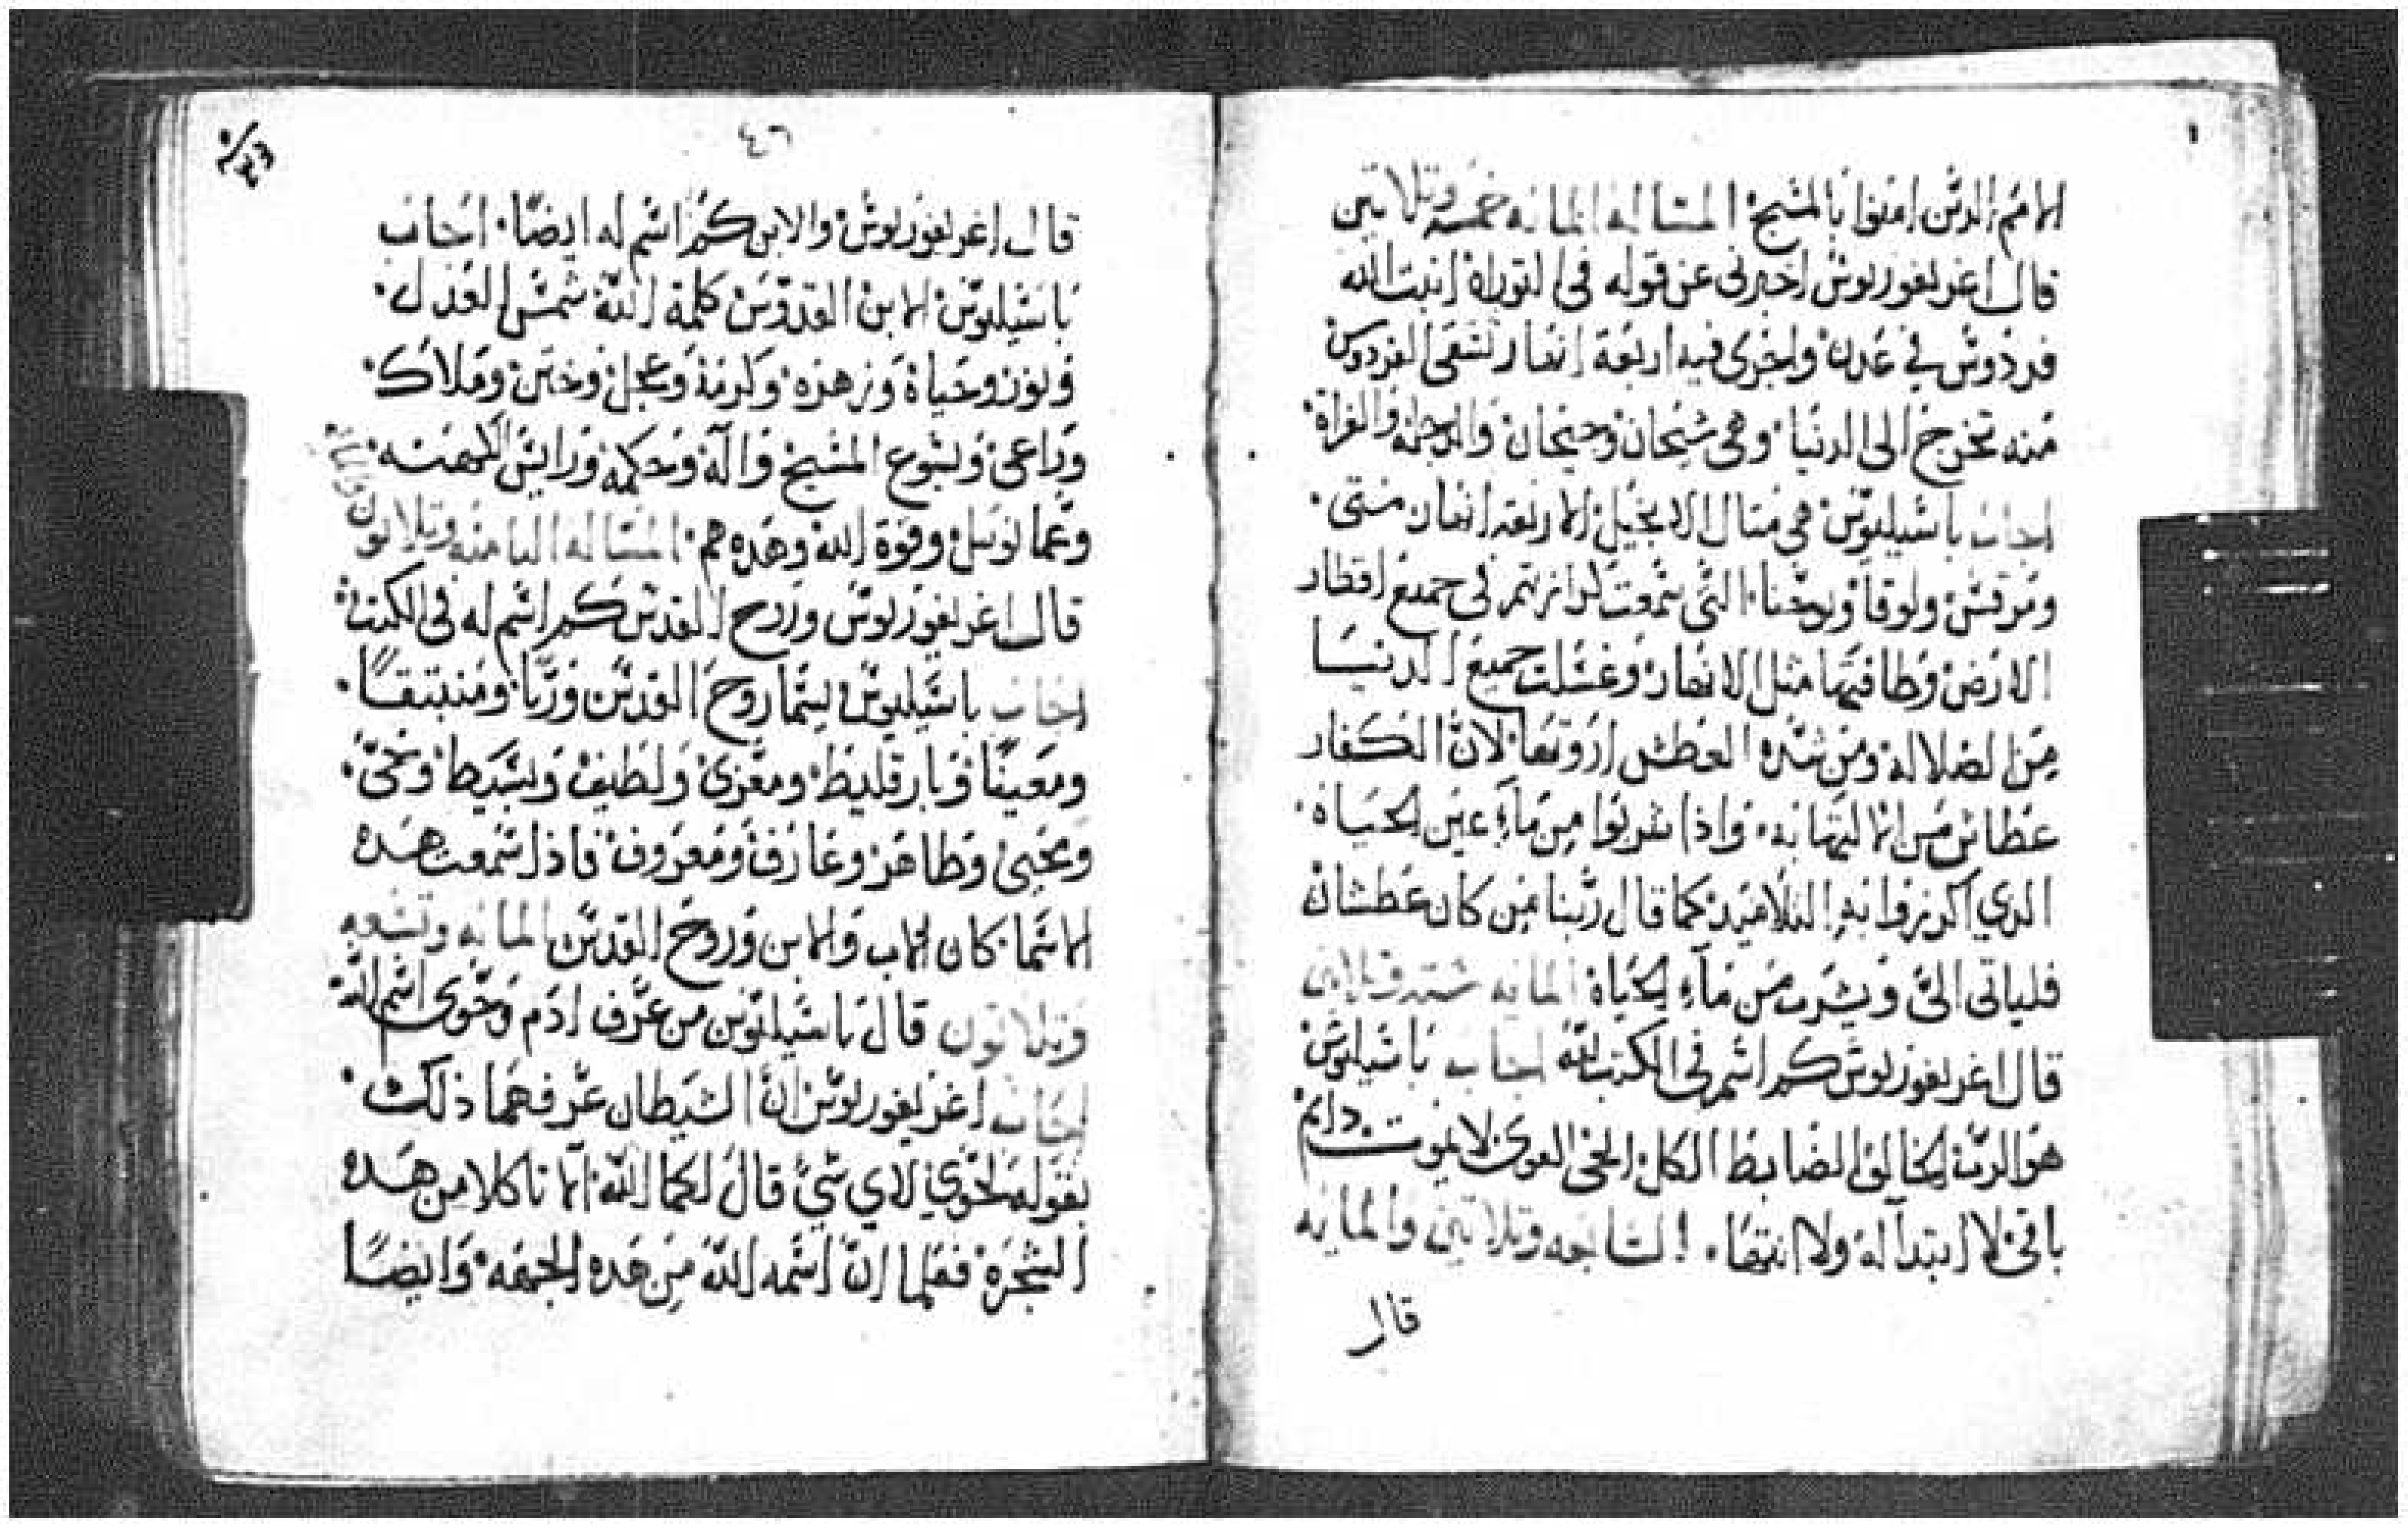 الامم الدين امنوا بالمسيح المساله المايه خمسه وتلاتين
قال اغريغوريوس اخبرني عن قوله في التوراة انبت الله
فردوس في عدن واجرى فيه اربعة انهار لتسقى الفردوس
منه تخرج الى الدنيا وهى سيحان وجيحان والدجله والفراة
اجاب باسيليوس هي متال الانجيل الاربعه انهار متى
ومرقس ولوقا ويوحنا التي سمعت كرازتهم في جميع اقطار
الارض وطافيها مثل الانهار وغسلت جميع الدنيا
من الضلالة ومن شدة العطش اروتها لان الكفار
عطاش من الالهيه واذا شربوا من مآء عين الحياه
الدي اكرزوا به التلاميد كما قال ربنا من كان عطشان
فلياتى الىّ ويشرب من مآء الحياة المايه سته وتلاتين
قال اغريغوريوس كم اسم في الكتب لله اجاب باسيليوس
هو الرب الخالق الضابط الكل الحى القوى لا يموت دايم
باقى لا ابتدآ له ولا انتها السابعه وتلاتين والمايه
قال
٤٦
قال اغريغوريوس والابن كم اسم له ايضًا اجاب
باسيليوس الابن القدوس كلمة الله شمس العدل
ونور وحياة وزهره وكرمة وعجل وختن وملاك
وراعى ويسوع المسيح واله وحكمه ورايس الكهنه
وعمانويل وقوة الله وهده هم المساله التامنه وتلاتون
قال اغريغوريوس وروح القدس كم اسم له في الكتب
اجاب باسيليوس يسما روح القدس وربًا ومنبتقًا
ومعينًا وبارقليط ومعزى ولطيف وبسيط وحىّ
ومحيى وطاهر وعارف ومعروف فاذا سمعت هده
الاسما كان الاب والابن وروح القدس المايه وتسعه
وتلاتون قال باسيليوس من عرّف ادم وحوى اسم الله
اجاب اغريغوريوس ان الشيطان عرفهما ذلك
بقوله لحوى لاي شي قال لكما الله الا تاكلا من هده
الشجرة فعلما ان اسمه الله من هده الجهه وايضًا